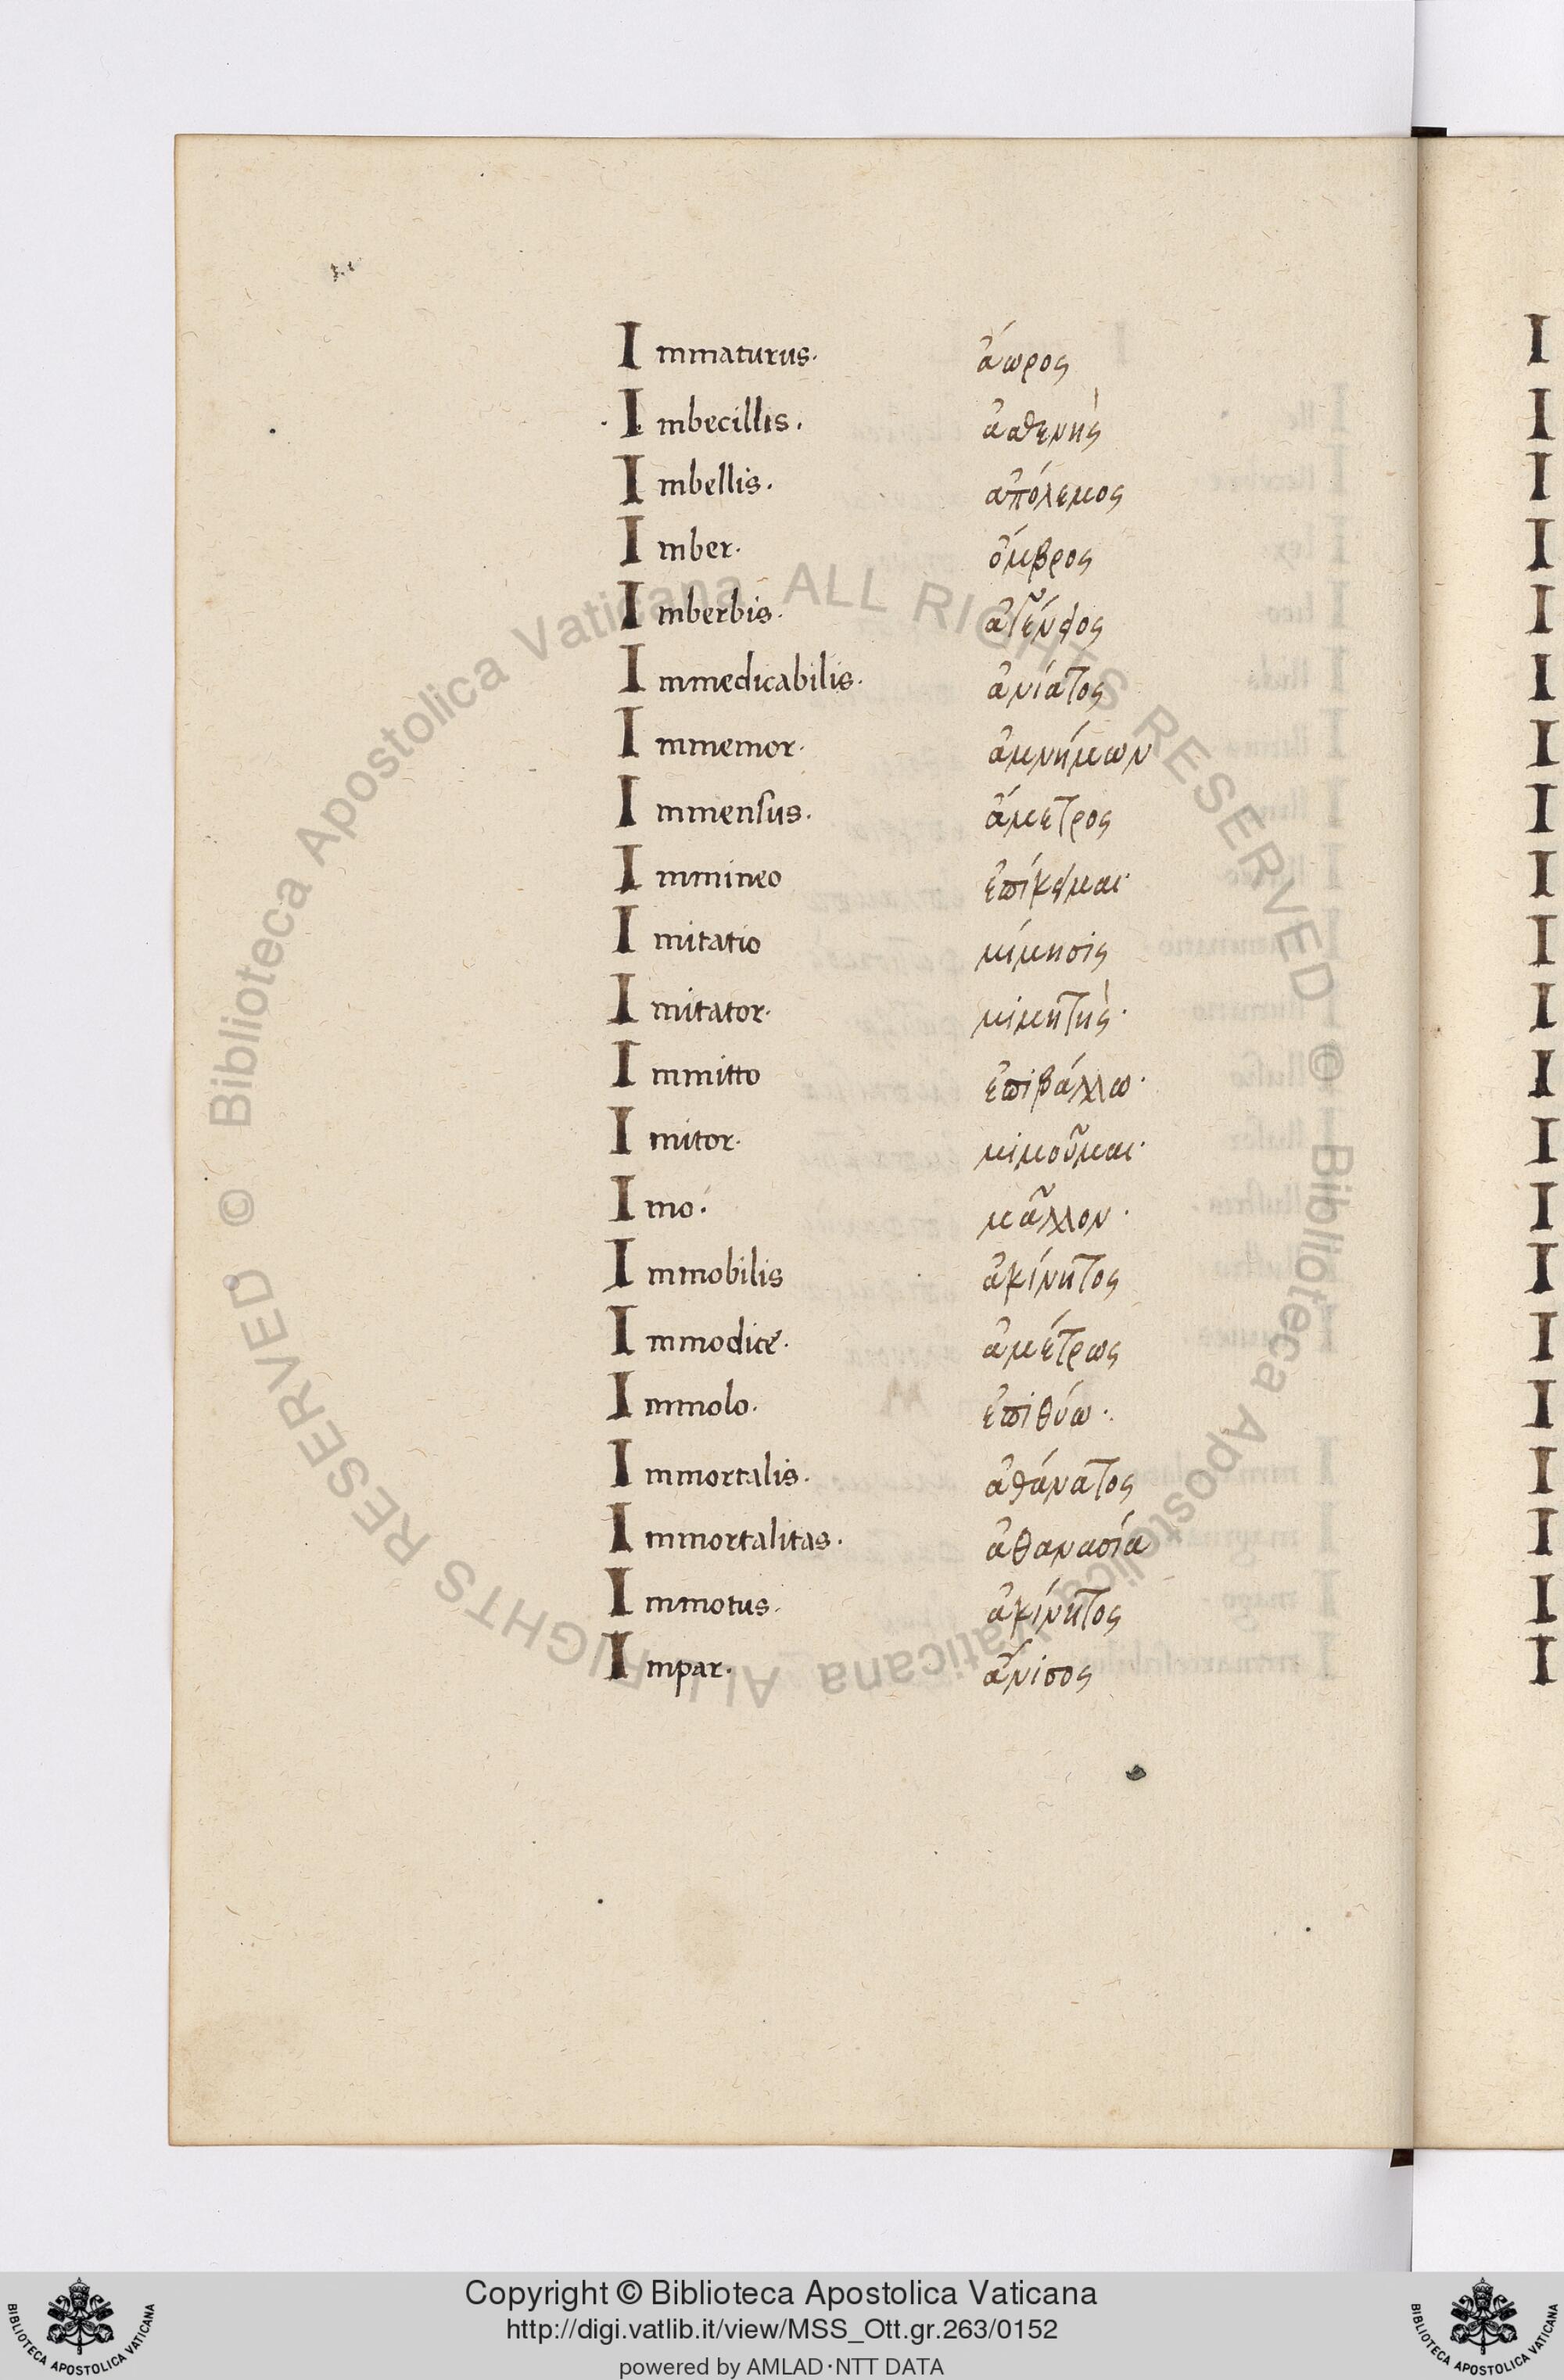 Immaturus. ἄωρος
Imbecillis. ἀσθενὴς
Imbellis. ἀπόλεμος
Imber. ὄμβρος
Imberbis.
Immedicabilis. ἀνίατος
Immemor. ἀμνήμων
Immensus. ἄμετρος
Immineo ἐπίκειμαι·
Imitatio μίμησις
Imitator. μιμητὴς·
Immitto ἐπιβάλλω·
Imitor. μιμοῦμαι·
Imo. μᾶλλον·
Immobilis ἀκίνητος
Immodice. ἀμέτρως
Immolo. ἐπιθύω·
Immortalis. ἀθάνατος
Immortalitas. ἀθανασία
Immotus. ἀκίνητος
Impar. ἄνισος
© Biblioteca Apostolica Vaticana ALL RIGHTS RESERVED © Biblioteca Apostolica Vaticana ALL RIGHTS RESERVED
Copyright © Biblioteca Apostolica Vaticana
http://digi.vatlib.it/view/MSS_Ott.gr.263/0152
powered by AMLAD·NTT DATA
BIBLIOTECA APOSTOLICA VATICANA
BIBLIOTECA APOSTOLICA VATICANA